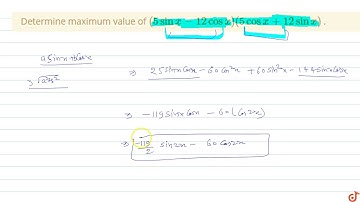 Determine maximum value of (5 sin x − 12 cos x)(5 cos x + 12 sin x) .
a sinx + b cosx
⇒ 25 sinx cosx − 60 cos²x + 60 sin²x − 144 sinx cosx
⇒ −119 sinx cosx − 60 (cos2x)
⇒ −119/2 sin2x − 60 cos2x